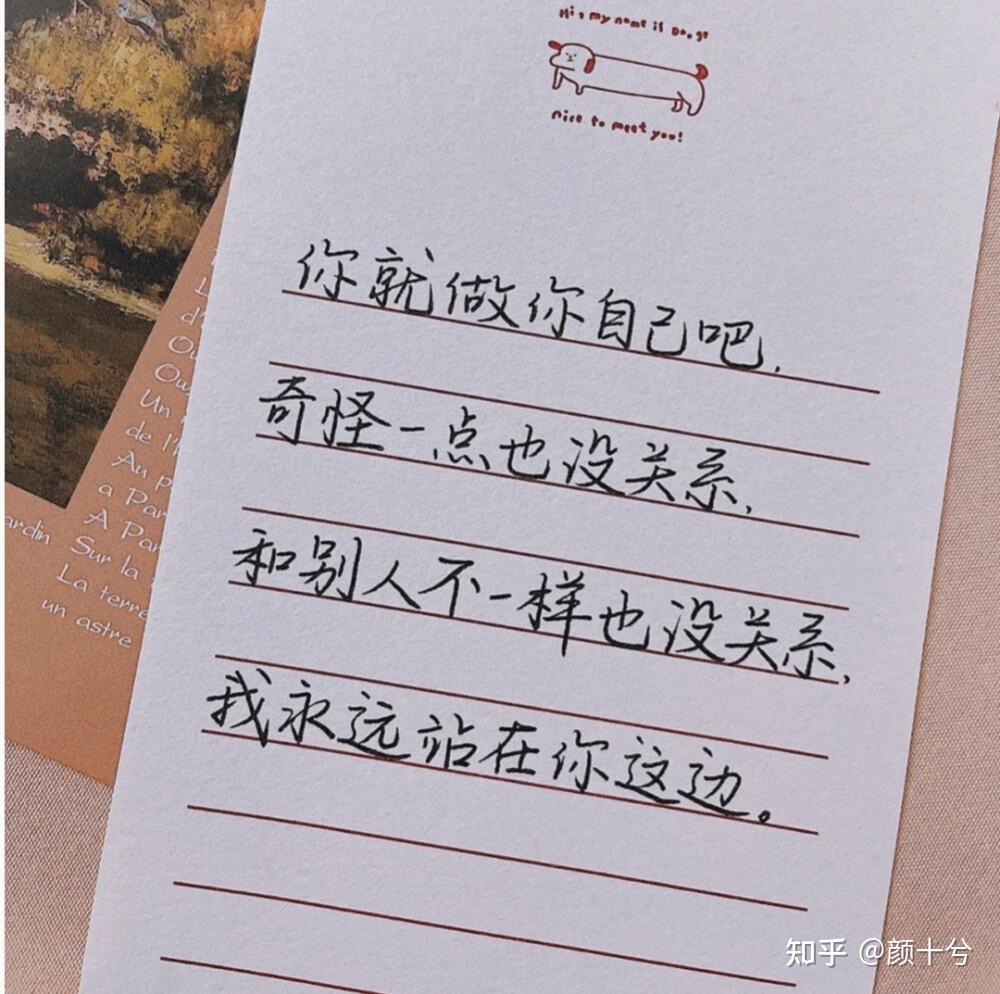 Hi, my name is Doge
nice to meet you!
你就做你自己吧,
奇怪一点也没关系,
和别人不一样也没关系,
我永远站在你这边。
L
d'
Ou
Ou
Un
de l'
Au p
a Par
A Par
ardin Sur la
La terre
un astre
知乎 @颜十兮